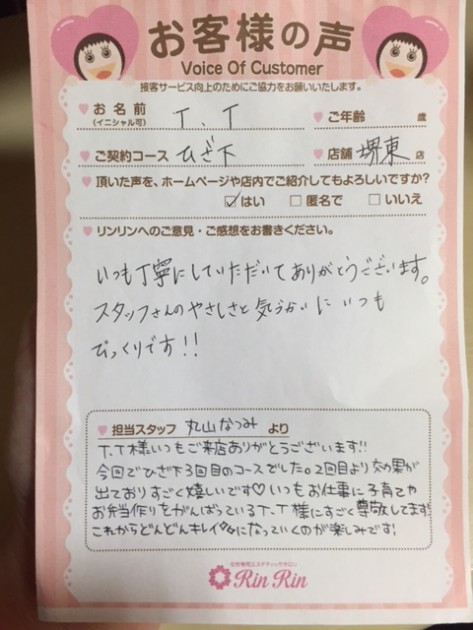 お客様の声
Voice Of Customer
接客サービス向上のためにご協力をお願いいたします。
お名前 T.T ご年齢 歳
(イニシャル可)
ご契約コース ひざ下 店舗 堺東 店
頂いた声を、ホームページや店内でご紹介してもよろしいですか?
はい 匿名で いいえ
リンリンへのご意見・ご感想をお書きください。
いつも丁寧にしていただいてありがとうございます。
スタッフさんのやさしさと気づかいにいつも
びっくりです!!
担当スタッフ 丸山なつみ より
T.T様いつもご来店ありがとうございます!!
今回でひざ下3回目のコースでした。2回目より効果が
出ておりすごく嬉しいです♡いつもお仕事に子育てや
お弁当作りをがんばっているT.T様にすごく尊敬してます!
これからどんどんキレイになっていくのが楽しみです!
女性専用エステティックサロン
Rin Rin